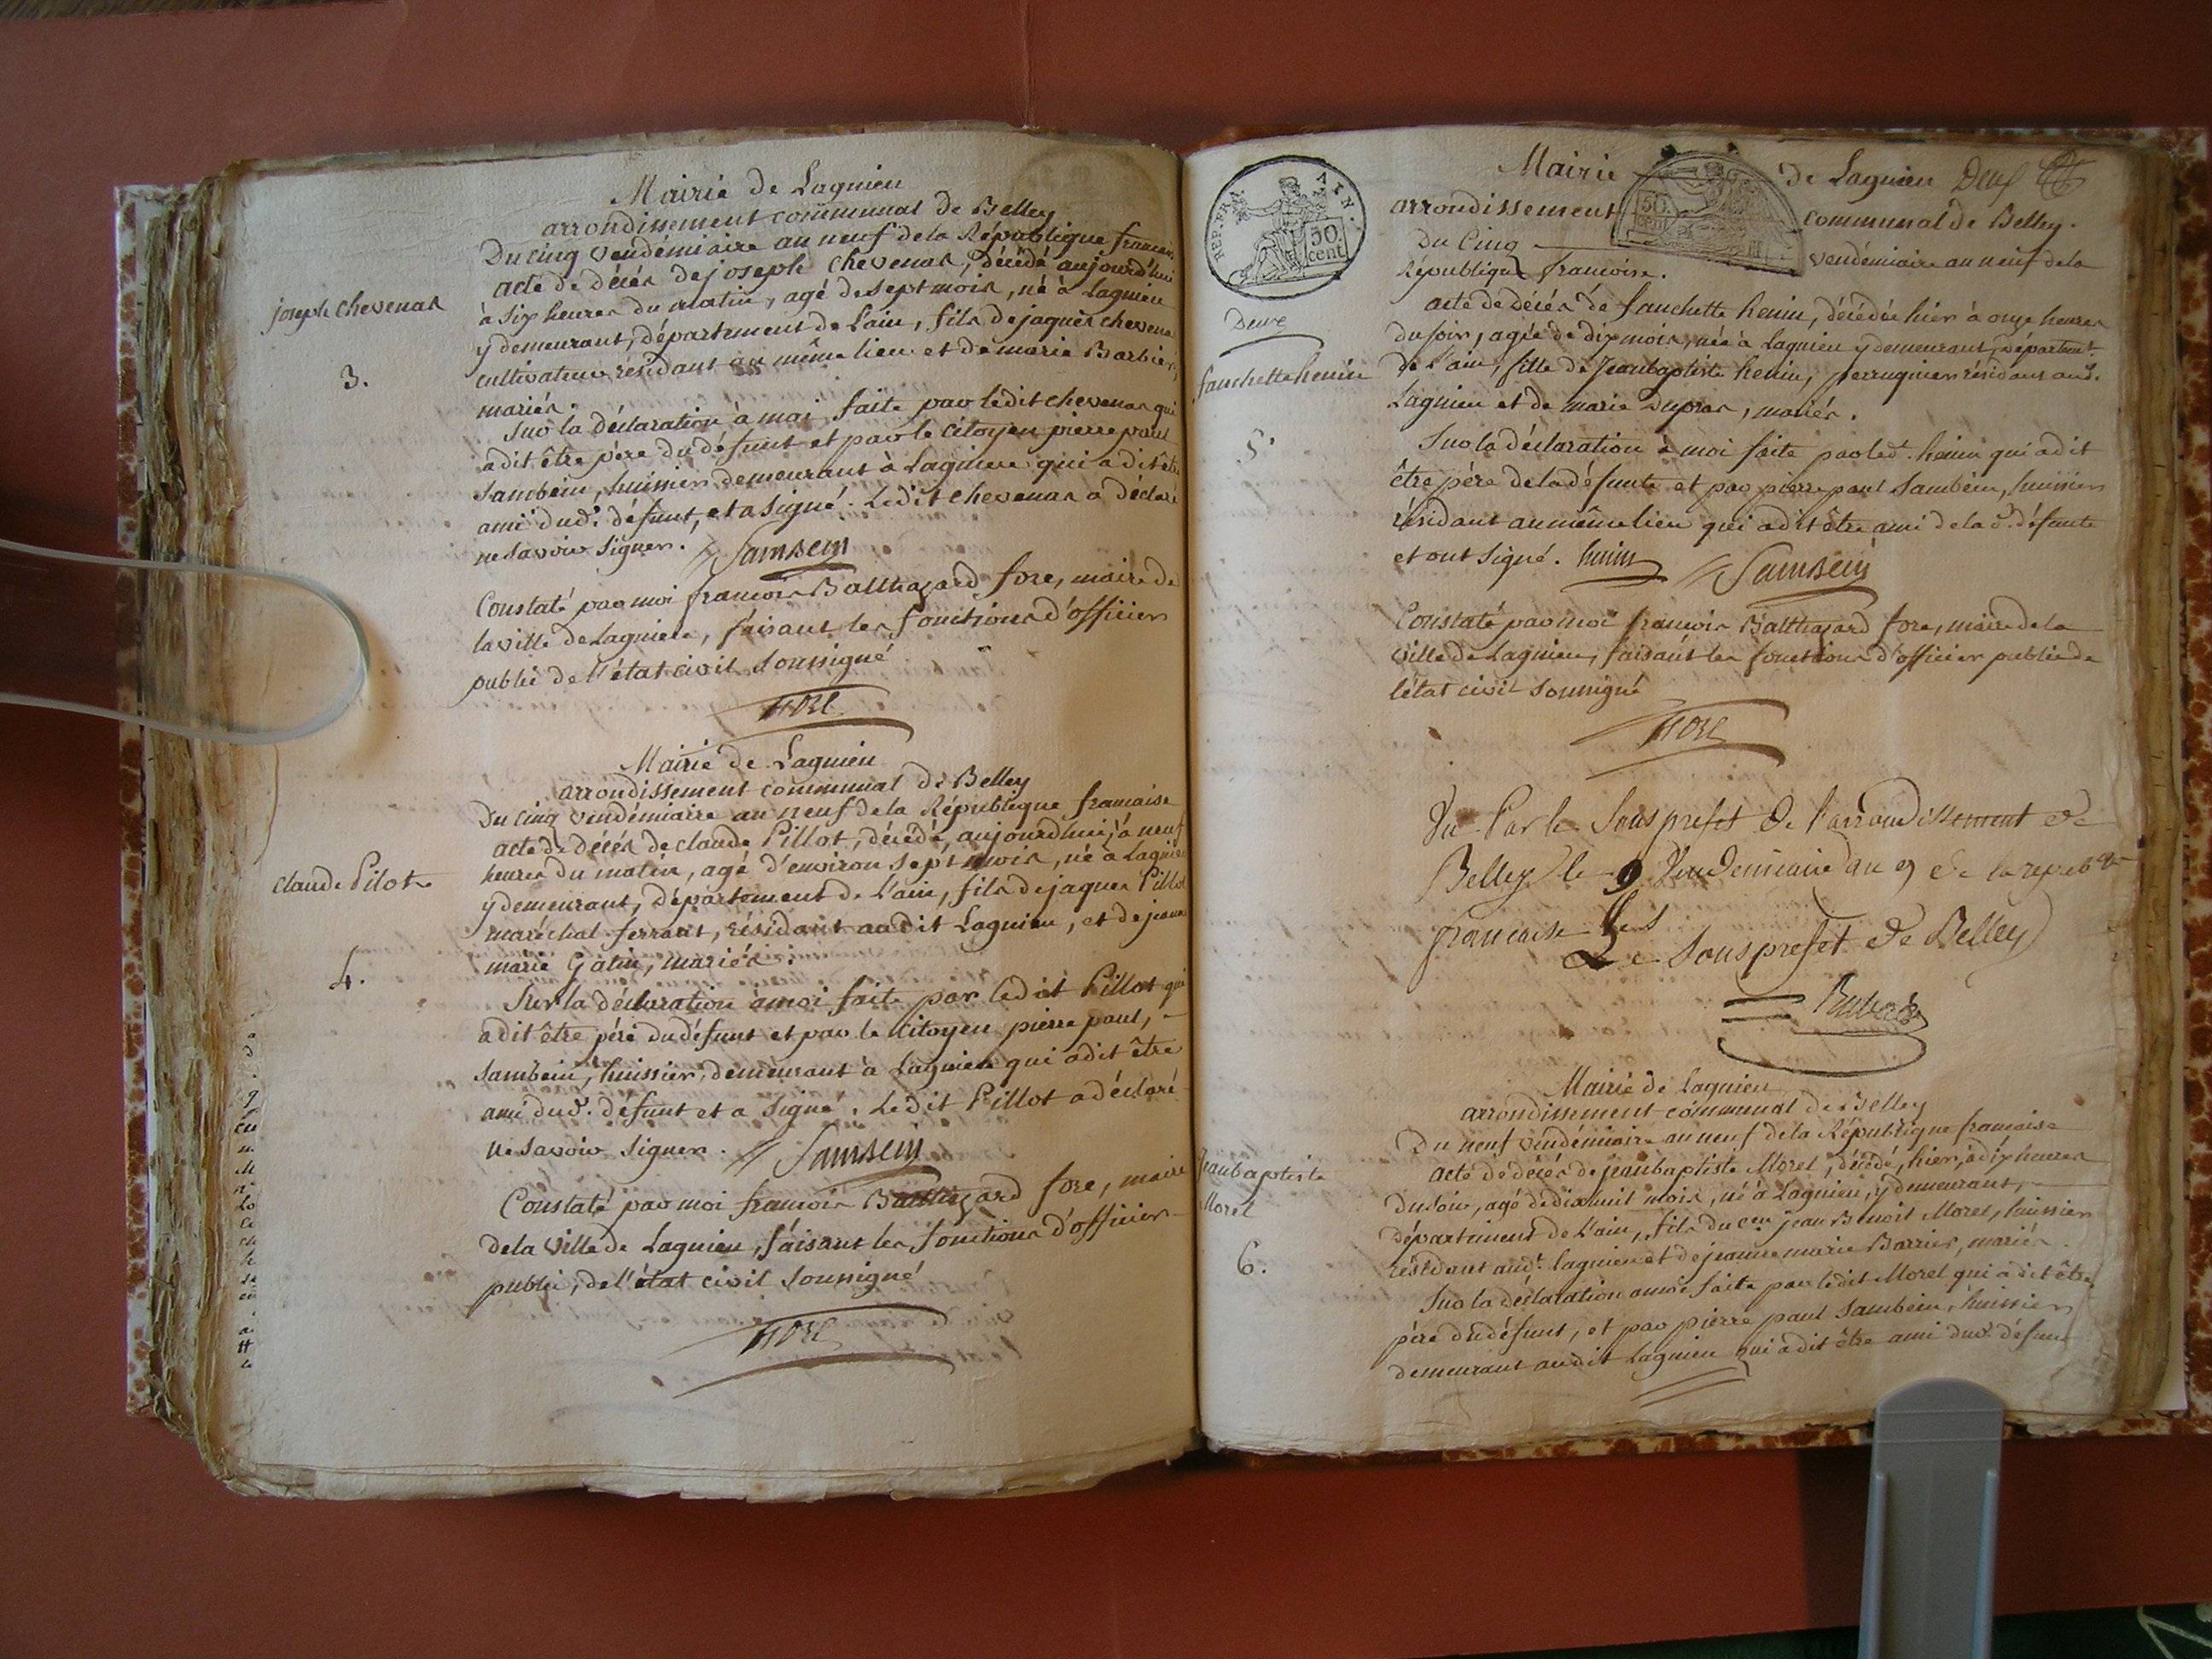 Mairie de Lagnieu
arrondissement communal de Belley
Du cinq vendémiaire an neuf de la République francais
acte de décés de joseph chevenas, décédé aujourd'hui
à six heures du matin, agé de sept mois, né à Lagnieu
y demeurant, département de l'ain, fils de jaques chevena
cultivateur résidant au même lieu et de marie Barbier,
mariés.
joseph chevenas
3.
Sur la déclaration à moi faite par ledit chevenas qui
a dit être père du défunt et par le Citoyen pierre paul
Sambein, huissier demeurant à Lagnieu qui a dit être
ami dud. défunt, et a signé. Ledit chevenas a déclaré
ne savoir signer. Sambein
Constaté par moi francois Balthazard fore, maire de
la ville de Lagnieu, faisant les fonctions d'officier
public de l'état civil soussigné
fore
Mairie de Lagnieu
arrondissement communal de Belley
Du cinq vendémiaire an neuf de la République francaise
acte de décés de claude Pillot, décédé, aujourdhui, à neuf
heures du matin, agé d'environ sept mois, né à Lagnieu
y demeurant, département de l'ain, fils de jaques Pillot
maréchal ferrant, résidant audit Lagnieu, et de jeanne
marie Gatin, mariés.
claude Pilot
4.
Sur la déclaration à moi faite par ledit Pillot qui
a dit être péré du défunt et par le Citoyen pierre paul,
Sambein, huissier, demeurant à Lagnieu qui a dit être
ami dud. defunt et a signé. Ledit Pillot a déclaré
ne savoir signer. Sambein
Constaté par moi francois Balthazard fore, maire
de la Ville de Lagnieu, faisant les fonctions d'officier
public, de l'état civil soussigné
fore
REP. FRA. ATN.
50 cent
Mairie de Lagnieu Deux
arrondissement communal de Belley.
Du Cinq vendémiaire an neuf de la
République francoise.
Deux
acte de décés de fanchette henin, décédée hier à onze heures
du soir, agée de dix mois, née à Lagnieu y demeurant, départemt.
de l'ain, fille de Jeanbaptiste henin, perruquier résidant aud.
Lagnieu et de marie Dupras, mariés.
fanchette henin
5.
Sur la déclaration à moi faite par led. henin qui a dit
être père de la défunte et par pierre paul Sambein, huissier
résidant au même lieu qui a dit être ami de la d. défunte
et ont signé. henin Sambein
Constaté par moi francois Balthazard fore, maire de la
ville de Lagnieu, faisant les fonctions d'officier public de
l'état civil soussigné
fore
Vu Par le Sous prefet de l'arrondissement de
Belley le 9 Vendemiaire an 9 de la repub
francaise
Le Sous prefet de Belley
Mairie de Lagnieu
arrondissement communal de Belley
Du neuf vendémiaire an neuf de la République francaise
acte de décés de jeanbaptiste Morel, décédé, hier, à dix heures
du soir, agé de dix huit mois, né à Lagnieu, y demeurant,
département de L'ain, fils du cen jean Benoit Morel, huissier
résidant aud. Lagnieu et de jeanne marie Barrier, mariés.
jeanbaptiste
Morel
6.
Sur la déclaration à moi faite par ledit Morel qui a dit être
pére du défunt, et par pierre paul Sambein, huissier
demeurant audit Lagnieu qui a dit être ami dud. défunt